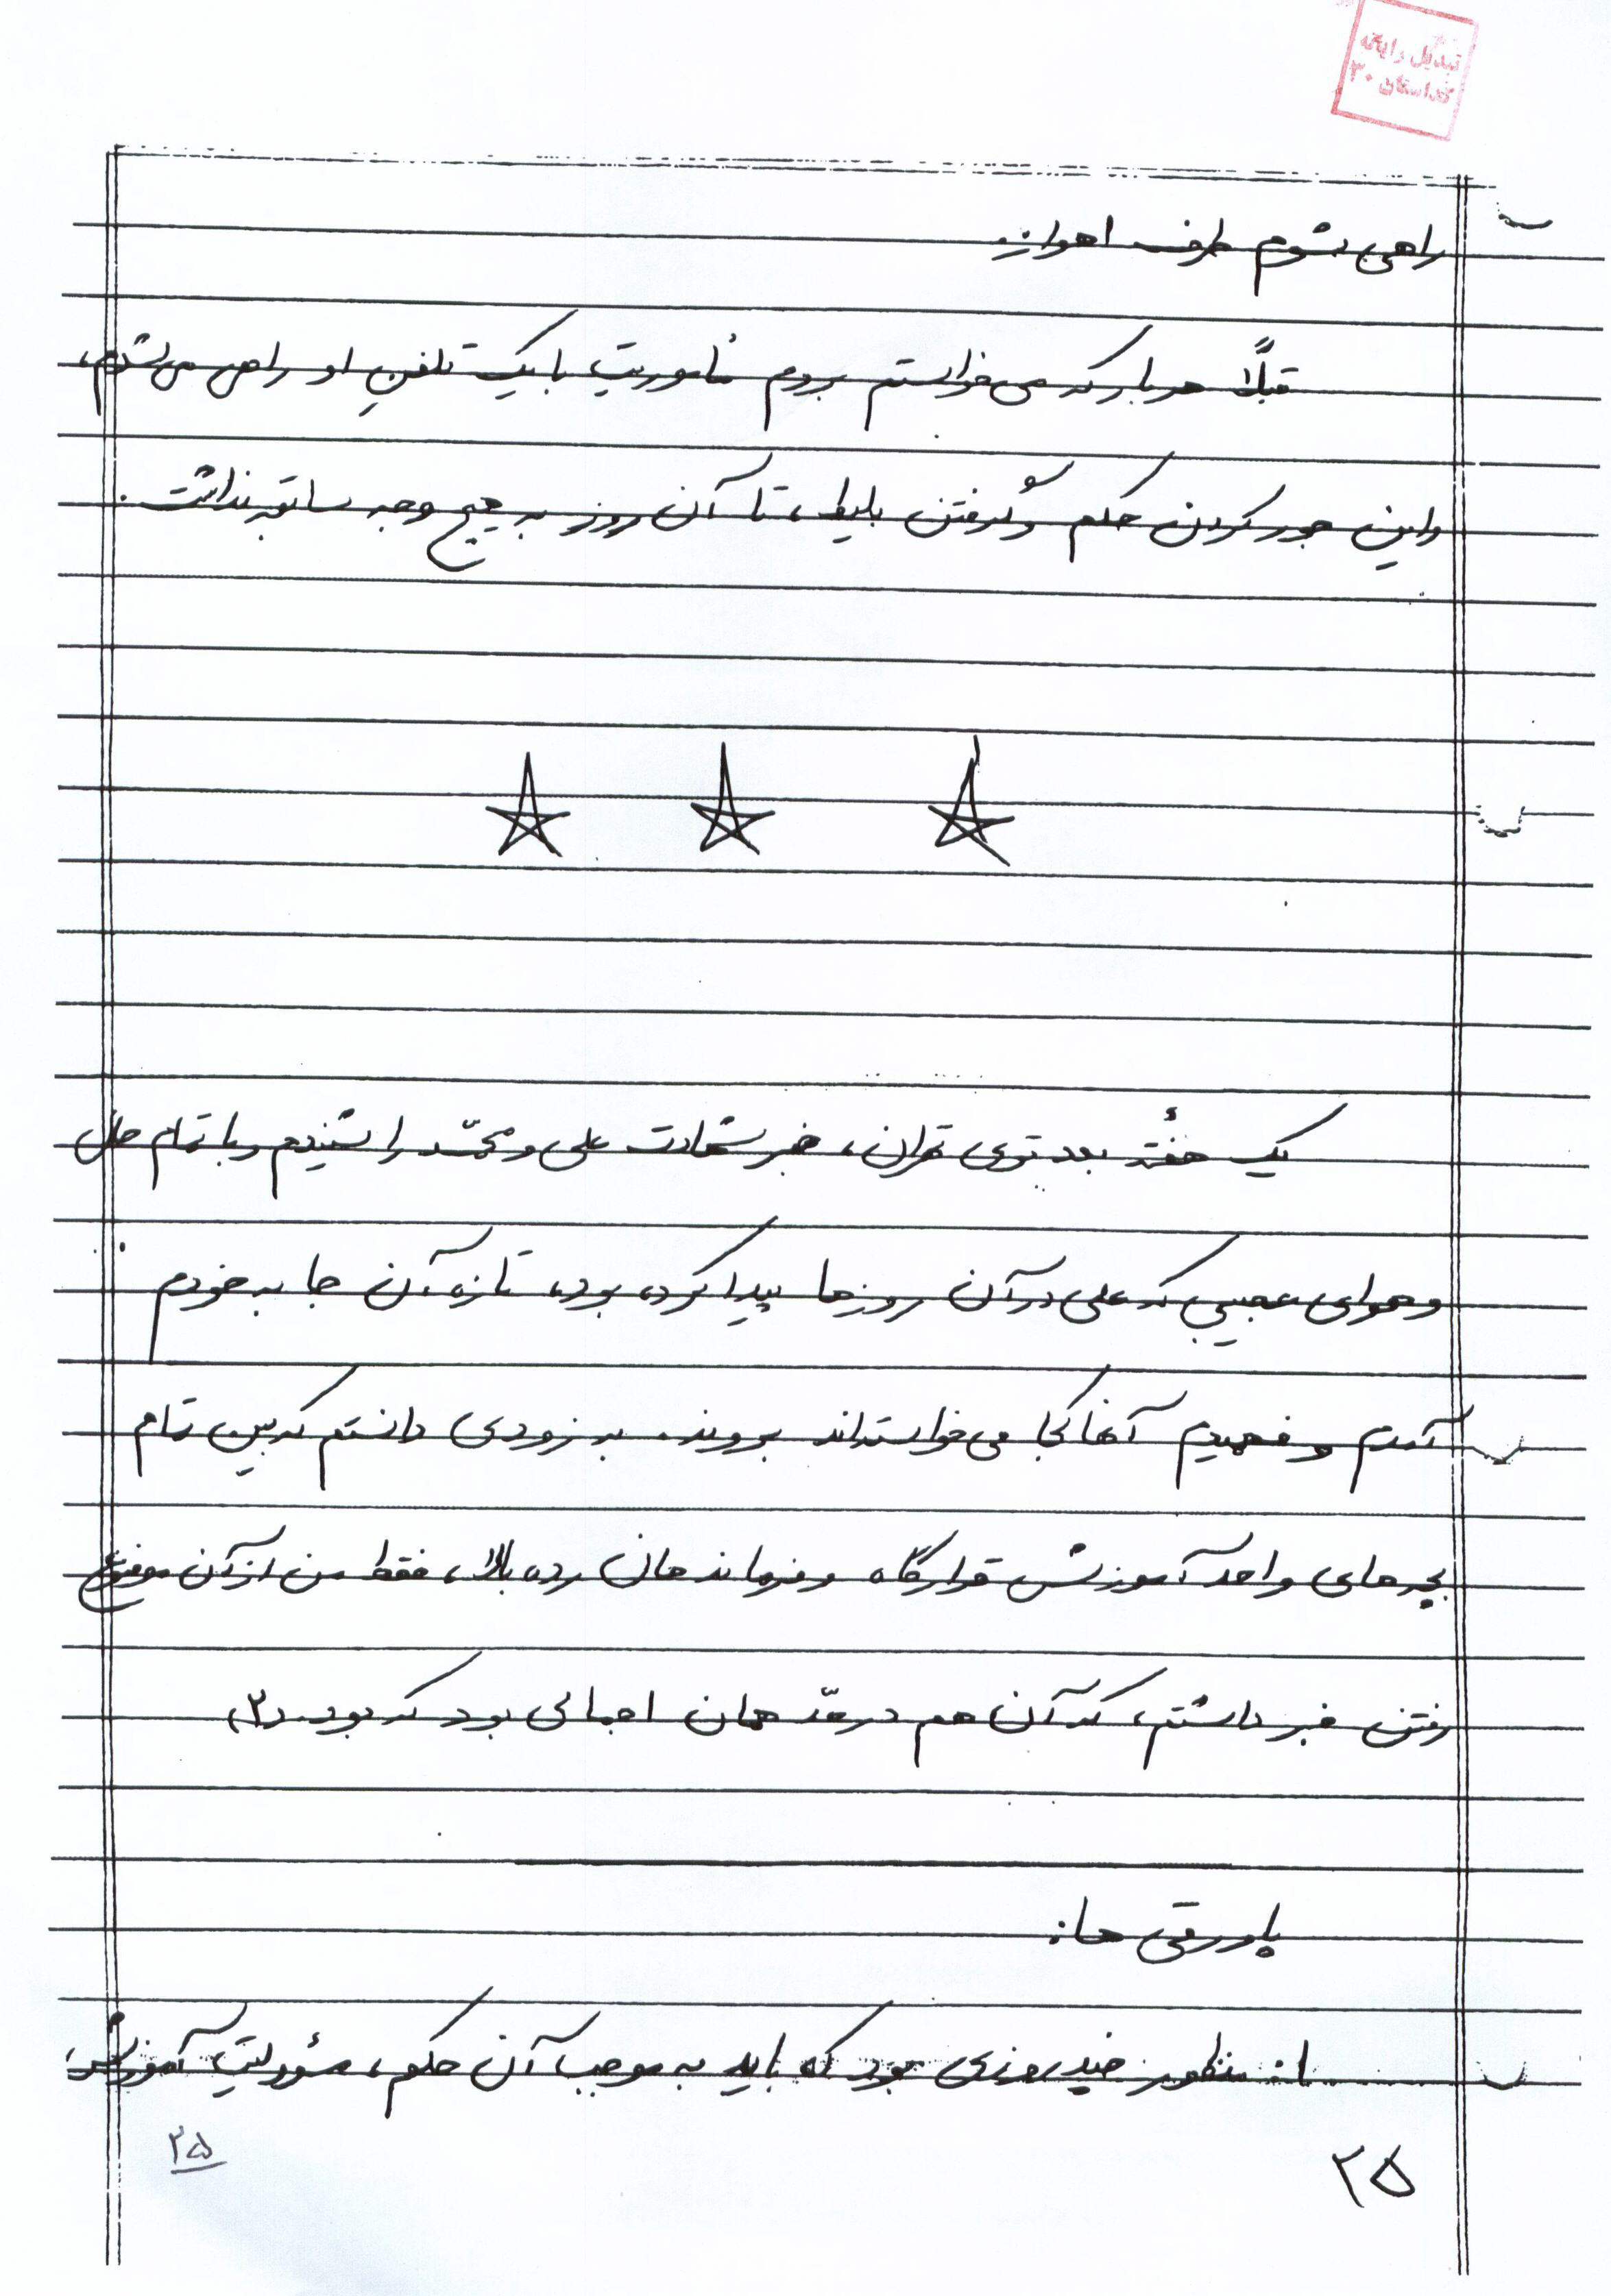 تبدیل رایانه
کد استان ۳۰
راهی بشوم طرف اهواز.
قبلاً هر بار که می‌خواستم بروم مأموریت با یک تلفنِ او راهی می‌شدم،
و این جور کردن حکم و گرفتن بلیط، تا آن روز به هیچ وجه سابقه نداشت.
یک هفتهٔ بعد توی تهران، خبر شهادت علی و محمّد را شنیدم و با تمام حال
و هوای عجیبی که علی در آن روزها پیدا کرده بود، تازه آن جا به خودم
آمدم و فهمیدم آنها کجا می‌خواسته‌اند بروند. به زودی دانستم که بین تمام
بچه‌های واحد آموزش قرارگاه و فرماندهان رده بالا، فقط من از آن موضوع
رفتن خبر داشتم، که آن هم در حدّ همان اجمالی بود که بود. (۲)
پاورقی ها:
۱. منظور چند روزی بود که باید به موجب آن حکم، مسئولیتِ آموزش
۲۵
۲۵